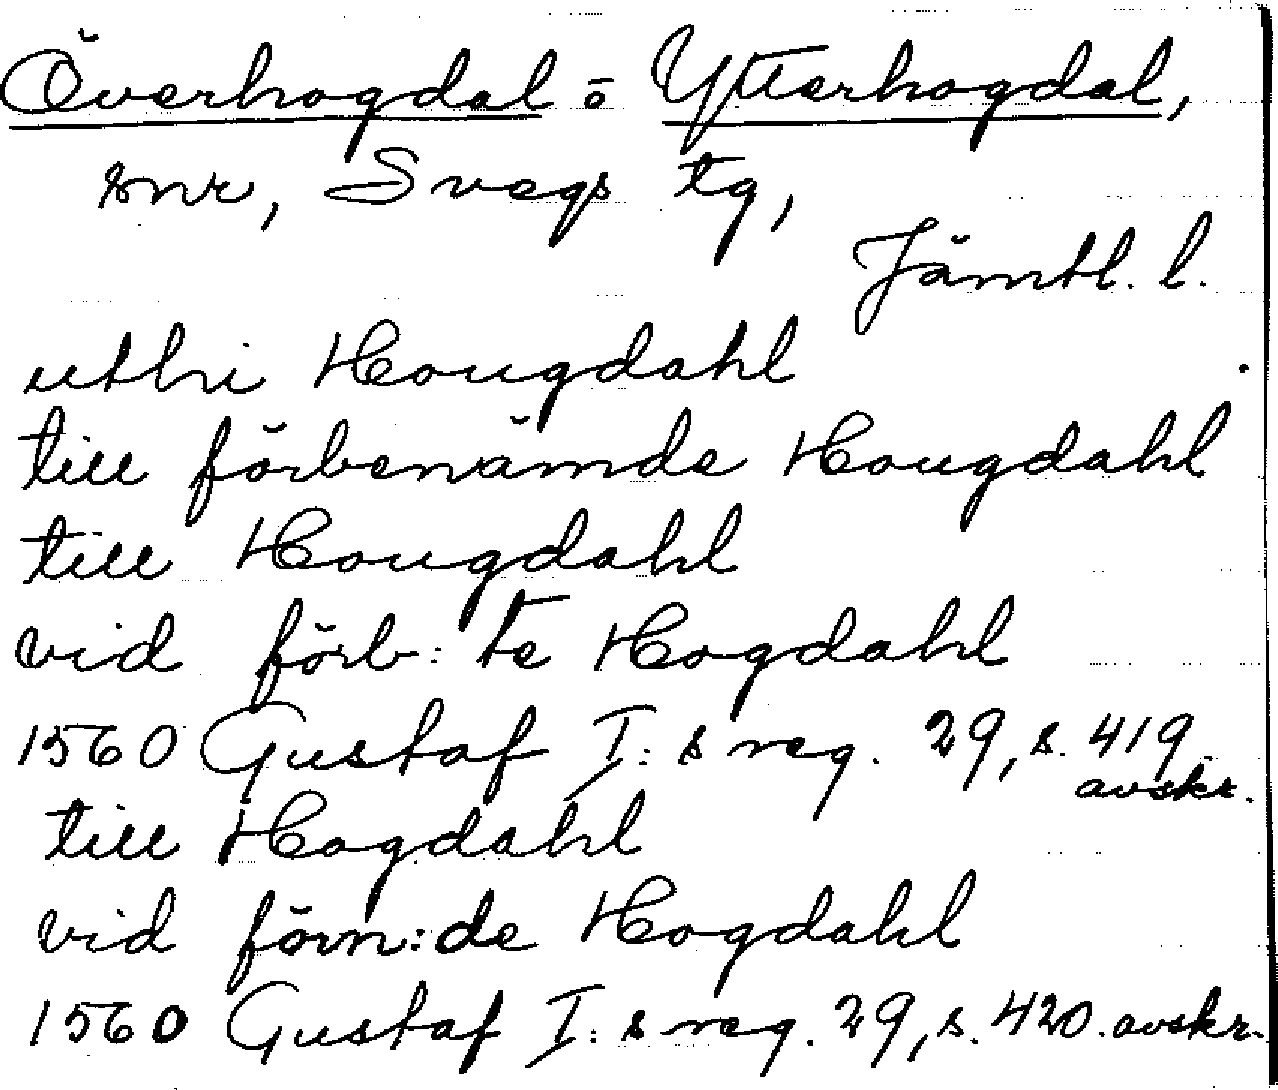 Överhogdal o Ytterhogdal,
snr, Svegs tg,
Jämtl. l.
uthi Hougdahl
till förbenämde Hougdahl
till Hougdahl
vid förb: te Hogdahl
1560 Gustaf I:s reg. 29, s. 419
avskr.
till Hogdahl
vid förn:de Hogdahl
1560 Gustaf I:s reg. 29, s. 420. avskr.